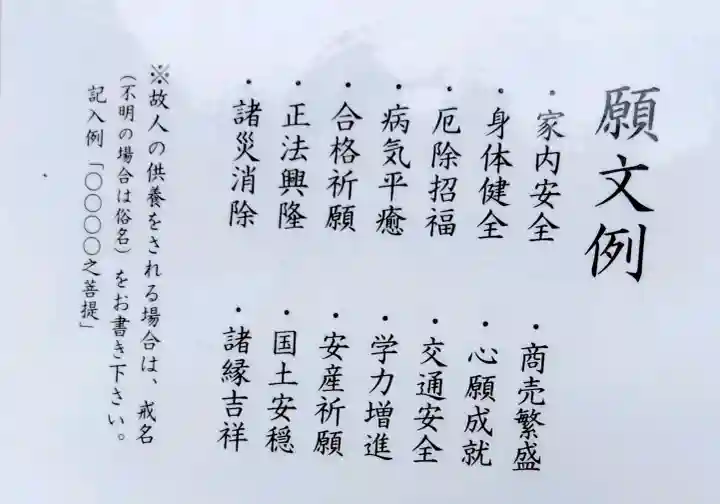 願文例
・家内安全
・身体健全
・厄除招福
・病気平癒
・合格祈願
・正法興隆
・諸災消除
・商売繁盛
・心願成就
・交通安全
・学力増進
・安産祈願
・国土安穏
・諸縁吉祥
※故人の供養をされる場合は、戒名
(不明の場合は俗名)をお書き下さい。
記入例「〇〇〇〇之菩提」